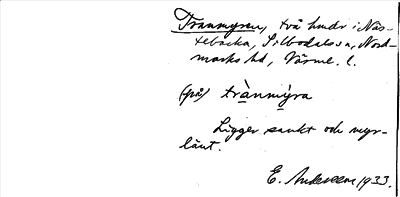 Tranmyren, två hmdr i Näs-
tebacka, Silbodals sn, Nord-
marks hd, Värml. l.
(på) trànmỳra
Ligger sankt och myr-
länt.
E. Andersson 1933.